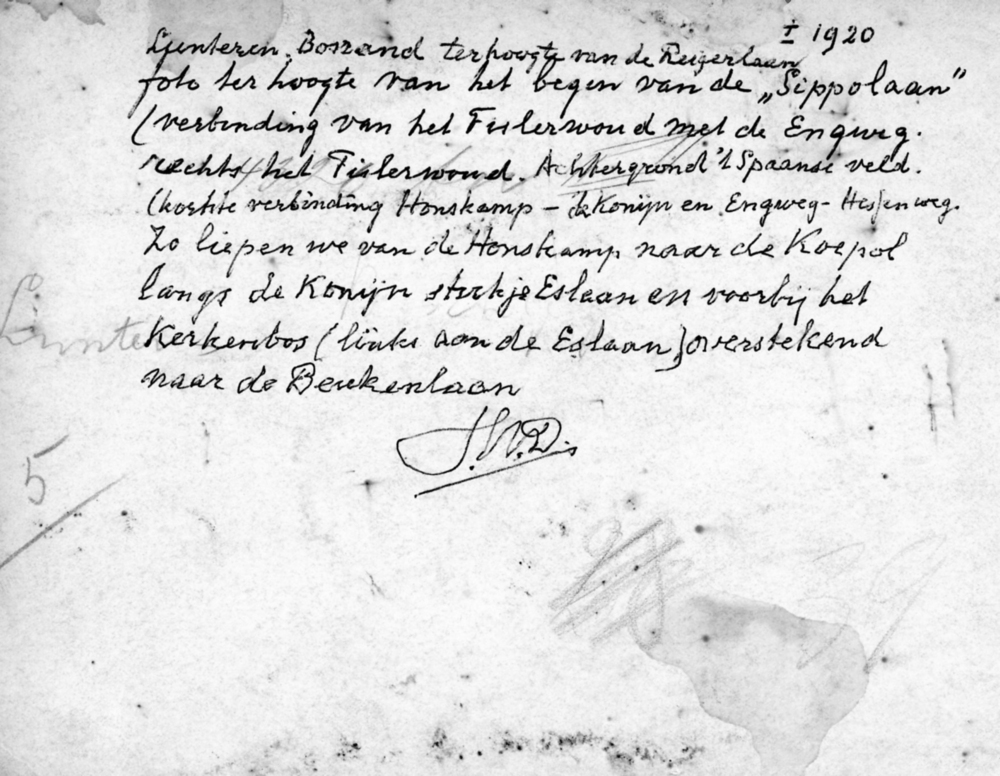 ± 1920
Lunteren. Bosrand ter hoogte van de Reigerlaan
foto ter hoogte van het begin van de „Sippolaan”
(verbinding van het Fislerwoud met de Engweg.
rechts het Fislerwoud. Achtergrond 't Spaanse veld.
(kortste verbinding Honskamp – de Konijn en Engweg – Hessenweg.
Zo liepen we van de Honskamp naar de Koepol
langs de Konijn stukje Eslaan en voorbij het
Kerkenbos (links aan de Eslaan) overstekend
naar de Beukenlaan
Lunte
5
39